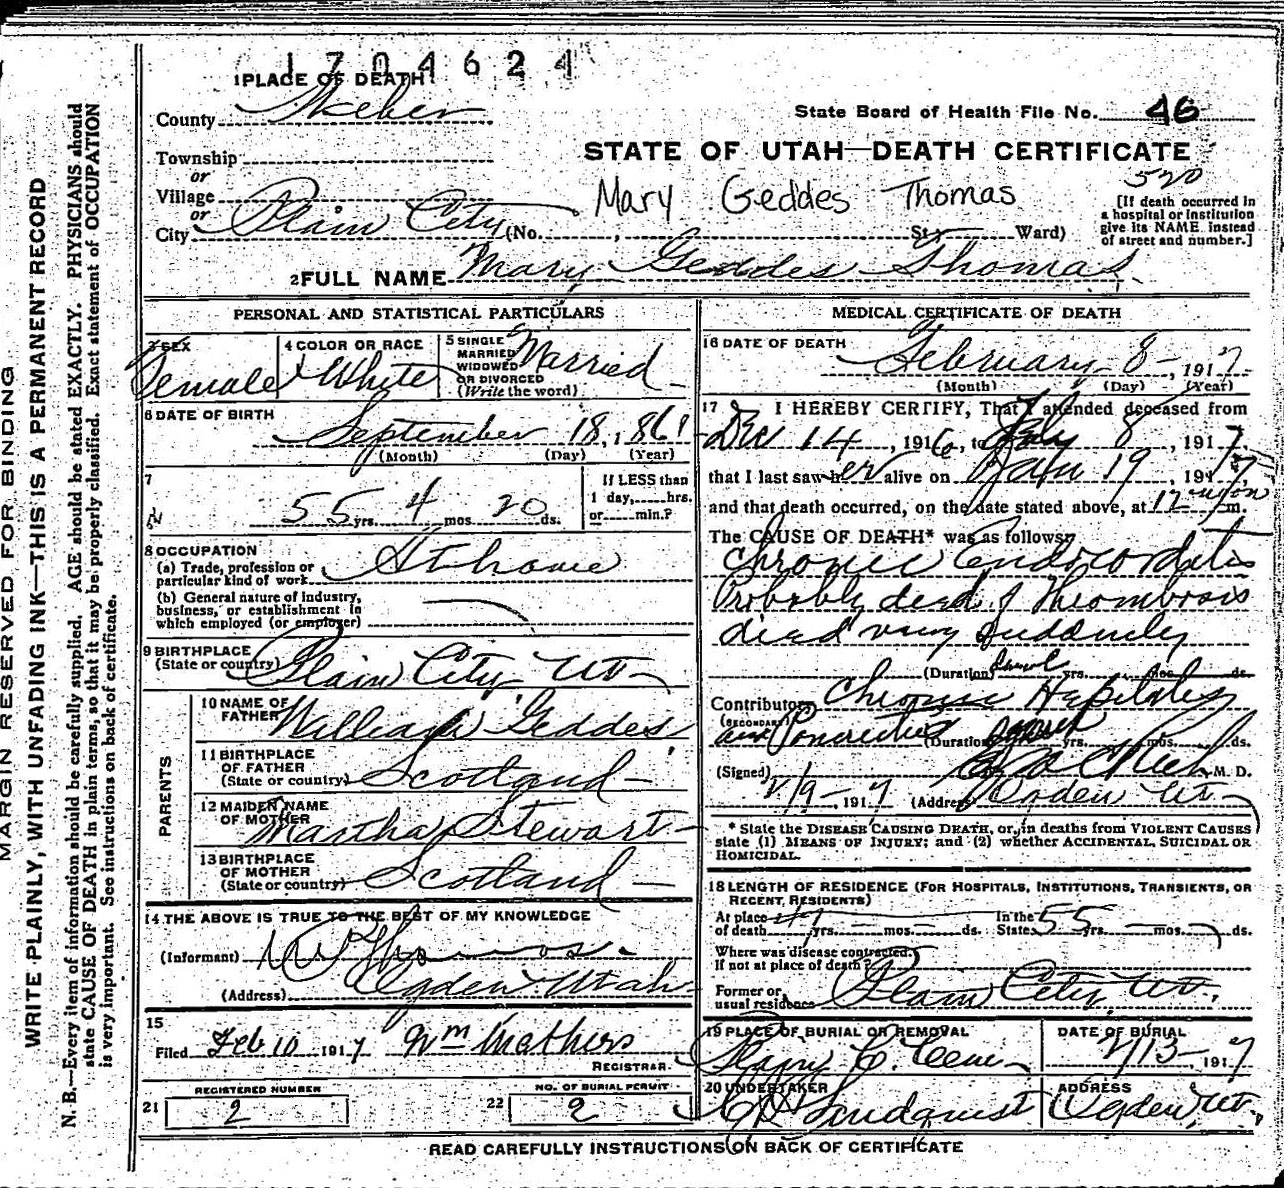 1704624
1 PLACE OF DEATH
County Weber
State Board of Health File No. 46
Township
or
Village
or
City Plain City (No. , St., Ward)
STATE OF UTAH—DEATH CERTIFICATE
520
Mary Geddes Thomas
[If death occurred in
a hospital or institution
give its NAME instead
of street and number.]
2 FULL NAME Mary Geddes Thomas
PERSONAL AND STATISTICAL PARTICULARS
3 SEX
Female
4 COLOR OR RACE
White
5 SINGLE
MARRIED
WIDOWED
OR DIVORCED
(Write the word)
Married
6 DATE OF BIRTH
September 18, 1861
(Month) (Day) (Year)
7
55 yrs. 4 mos. 20 ds.
If LESS than
1 day, hrs.
or min.?
8 OCCUPATION
(a) Trade, profession or
particular kind of work At home
(b) General nature of industry,
business, or establishment in
which employed (or employer)
9 BIRTHPLACE
(State or country) Plain City Ut
PARENTS
10 NAME OF
FATHER William Geddes
11 BIRTHPLACE
OF FATHER
(State or country) Scotland
12 MAIDEN NAME
OF MOTHER Martha Stewart
13 BIRTHPLACE
OF MOTHER
(State or country) Scotland
14 THE ABOVE IS TRUE TO THE BEST OF MY KNOWLEDGE
(Informant) Thomas
(Address) Ogden Utah
15
Filed Feb 10 1917 Wm Mathers
REGISTRAR
21 REGISTERED NUMBER
2
22 NO. OF BURIAL PERMIT
2
MEDICAL CERTIFICATE OF DEATH
16 DATE OF DEATH
February 8 , 1917
(Month) (Day) (Year)
17 I HEREBY CERTIFY, That I attended deceased from
Dec 14, 1916, to Feby 8, 1917,
that I last saw her alive on Jan 19, 1917,
and that death occurred, on the date stated above, at 12 noon m.
The CAUSE OF DEATH* was as follows:
Chronic Endocarditis
Probably died of Thrombosis
died very suddenly
(Duration) yrs. mos. ds.
Contributory Chronic Hepatitis
(SECONDARY) and Pancreatitis (Duration) yrs. mos. ds.
(Signed) M. D.
2/9-, 1917 (Address) Ogden Ut
* State the DISEASE CAUSING DEATH, or, in deaths from VIOLENT CAUSES
state (1) MEANS OF INJURY; and (2) whether ACCIDENTAL, SUICIDAL OR
HOMICIDAL.
18 LENGTH OF RESIDENCE (FOR HOSPITALS, INSTITUTIONS, TRANSIENTS, OR
RECENT RESIDENTS)
At place
of death yrs. mos. ds. In the
State 55 yrs. mos. ds.
Where was disease contracted,
If not at place of death?
Former or
usual residence Plain City Ut.
19 PLACE OF BURIAL OR REMOVAL
Plain C. Cem
DATE OF BURIAL
2/13-, 1917
20 UNDERTAKER
Lindquist
ADDRESS
Ogden, Ut.
READ CAREFULLY INSTRUCTIONS ON BACK OF CERTIFICATE
MARGIN RESERVED FOR BINDING
WRITE PLAINLY, WITH UNFADING INK—THIS IS A PERMANENT RECORD
N. B.—Every item of information should be carefully supplied. AGE should be stated EXACTLY. PHYSICIANS should
state CAUSE OF DEATH in plain terms, so that it may be properly classified. Exact statement of OCCUPATION
is very important. See instructions on back of certificate.